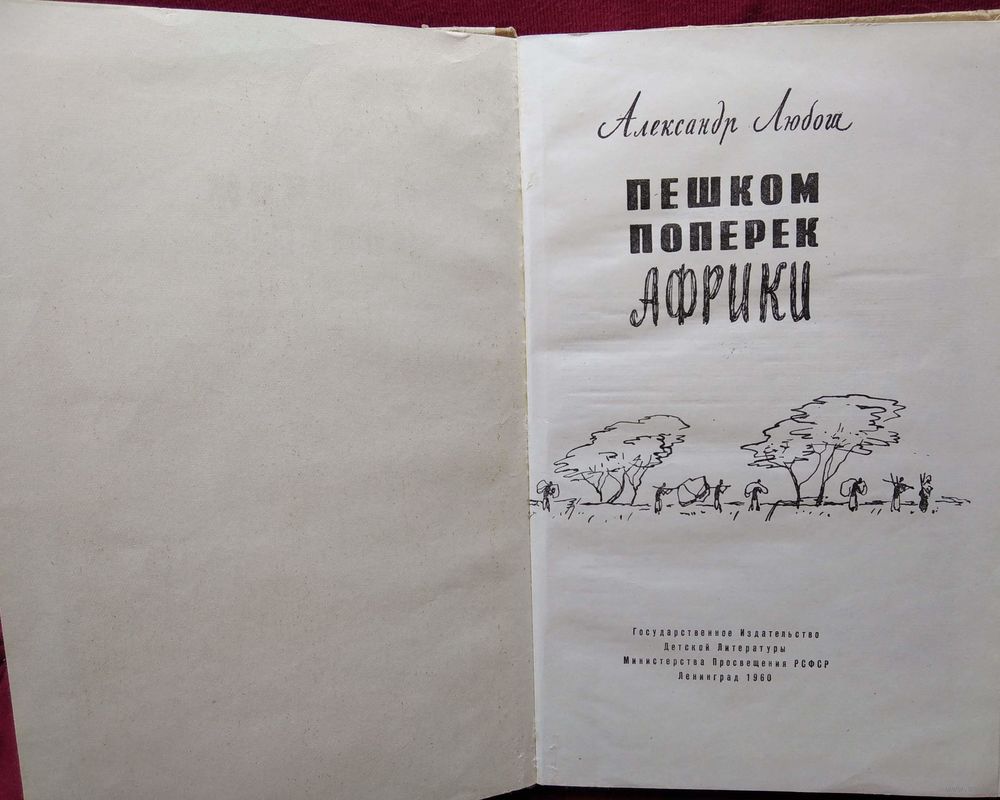 Александр Любош
ПЕШКОМ
ПОПЕРЕК
АФРИКИ
Государственное Издательство
Детской Литературы
Министерства Просвещения РСФСР
Ленинград 1960